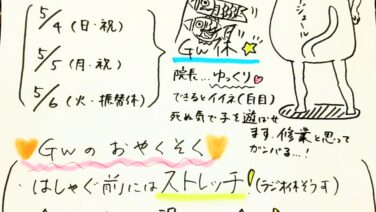 5/4 (日・祝)
5/5 (月・祝)
5/6 (火・振替休)
GW休
院長…ゆっくり
できるとイイネ(白目)
死ぬ気で子を遊ばせ
ます。修業と思って
ガンバる…!
GWのおやくそく
・はしゃぐ前にはストレッチ!(ラジオ体そうす)